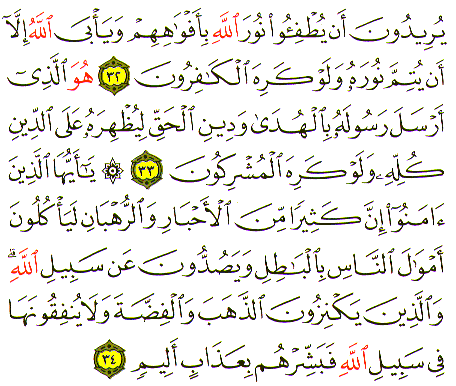 يُرِيدُونَ أَن يُطْفِـُٔوا۟ نُورَ ٱللَّهِ بِأَفْوَٰهِهِمْ وَيَأْبَى ٱللَّهُ إِلَّآ
أَن يُتِمَّ نُورَهُۥ وَلَوْ كَرِهَ ٱلْكَـٰفِرُونَ ٣٢ هُوَ ٱلَّذِىٓ
أَرْسَلَ رَسُولَهُۥ بِٱلْهُدَىٰ وَدِينِ ٱلْحَقِّ لِيُظْهِرَهُۥ عَلَى ٱلدِّينِ
كُلِّهِۦ وَلَوْ كَرِهَ ٱلْمُشْرِكُونَ ٣٣ ۞ يَـٰٓأَيُّهَا ٱلَّذِينَ
ءَامَنُوٓا۟ إِنَّ كَثِيرًا مِّنَ ٱلْأَحْبَارِ وَٱلرُّهْبَانِ لَيَأْكُلُونَ
أَمْوَٰلَ ٱلنَّاسِ بِٱلْبَـٰطِلِ وَيَصُدُّونَ عَن سَبِيلِ ٱللَّهِ ۗ
وَٱلَّذِينَ يَكْنِزُونَ ٱلذَّهَبَ وَٱلْفِضَّةَ وَلَا يُنفِقُونَهَا
فِى سَبِيلِ ٱللَّهِ فَبَشِّرْهُم بِعَذَابٍ أَلِيمٍ ٣٤